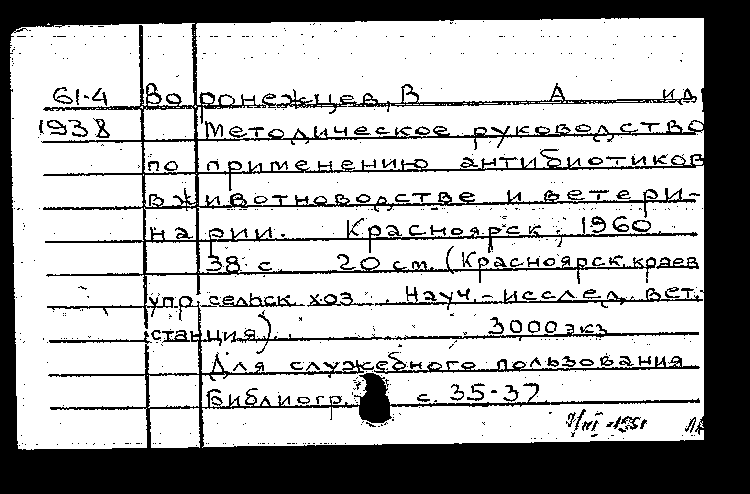 61-4 Воронежцев, В А и др
1938 Методическое руководство
по применению антибиотиков
в животноводстве и ветери-
нарии. Красноярск, 1960.
38 с. 20 см. (Красноярск. краев
упр. сельск. хоз. Науч.-исслед. вет.
станция). 3000 экз
Для служебного пользования
Библиогр. с. 35-37